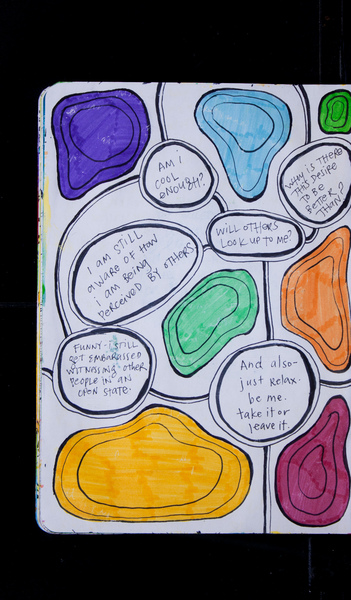 AM I
COOL
ENOUGH?
WHY IS THERE
THIS DESIRE
TO BE
BETTER
THAN?
WILL OTHERS
LOOK UP TO ME?
I AM STILL
AWARE OF HOW
i AM BEING
PERCEIVED BY OTHERS
FUNNY. I STILL
GET EMBARASSED
WITNESSING OTHER
PEOPLE IN AN
OPEN STATE.
And also-
just relax.
be me.
take it or
leave it.